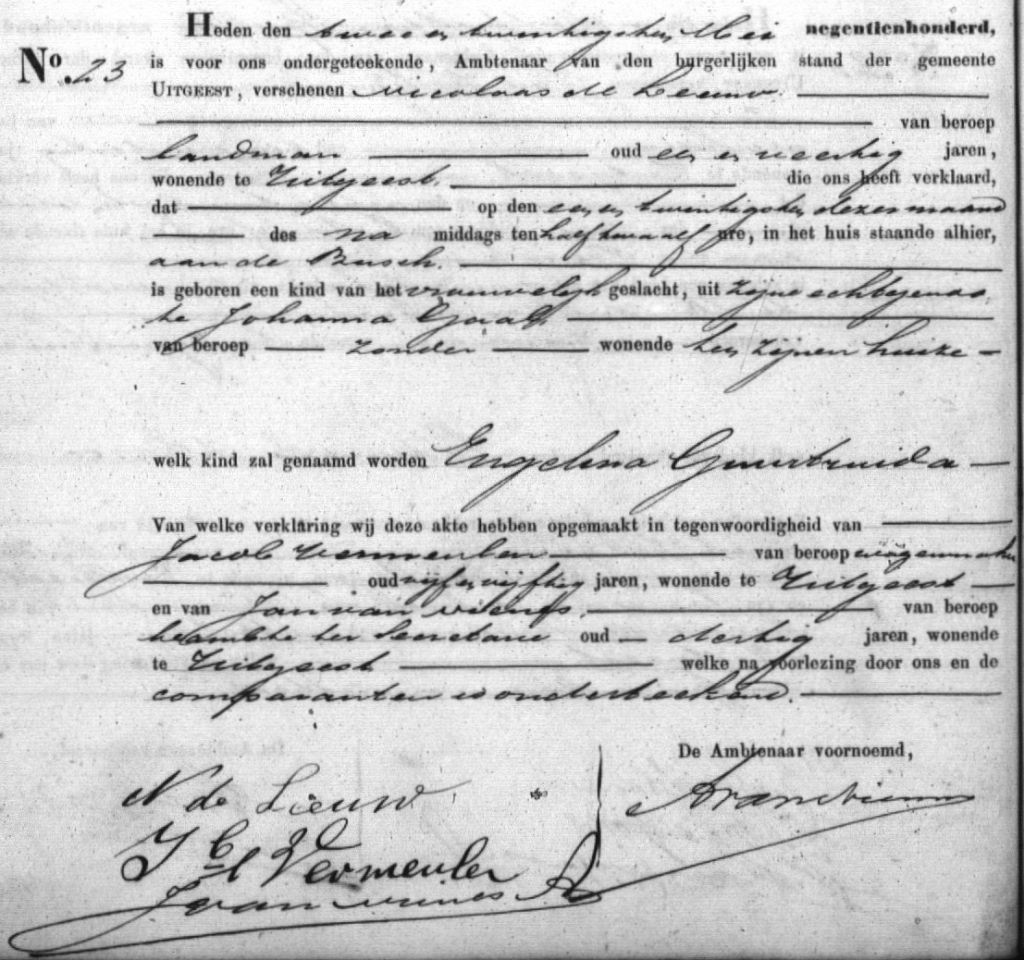 Heden den twee en twintigsten Mei negentienhonderd,
No. 23 is voor ons ondergeteekende, Ambtenaar van den burgerlijken stand der gemeente
UITGEEST, verschenen Nicolaas de Leeuw.
van beroep
landman oud een en veertig jaren,
wonende te Uitgeest. die ons heeft verklaard,
dat op den een en twintigsten dezer maand
des na middags ten half twaalf ure, in het huis staande alhier,
aan de Busch.
is geboren een kind van het vrouwelijk geslacht, uit zijne echtgenoo
te Johanna
van beroep zonder wonende ten zijnen huize
welk kind zal genaamd worden Engelina Geertruida
Van welke verklaring wij deze akte hebben opgemaakt in tegenwoordigheid van
Jacob Vermeulen van beroep wagenmaker
oud vijf en vijftig jaren, wonende te Uitgeest
en van Jan van van beroep
beambte ter Secretarie oud dertig jaren, wonende
te Uitgeest welke na voorlezing door ons en de
comparanten is onderteekend.
De Ambtenaar voornoemd,
N de Lieuw
Jb Vermeulen
J van